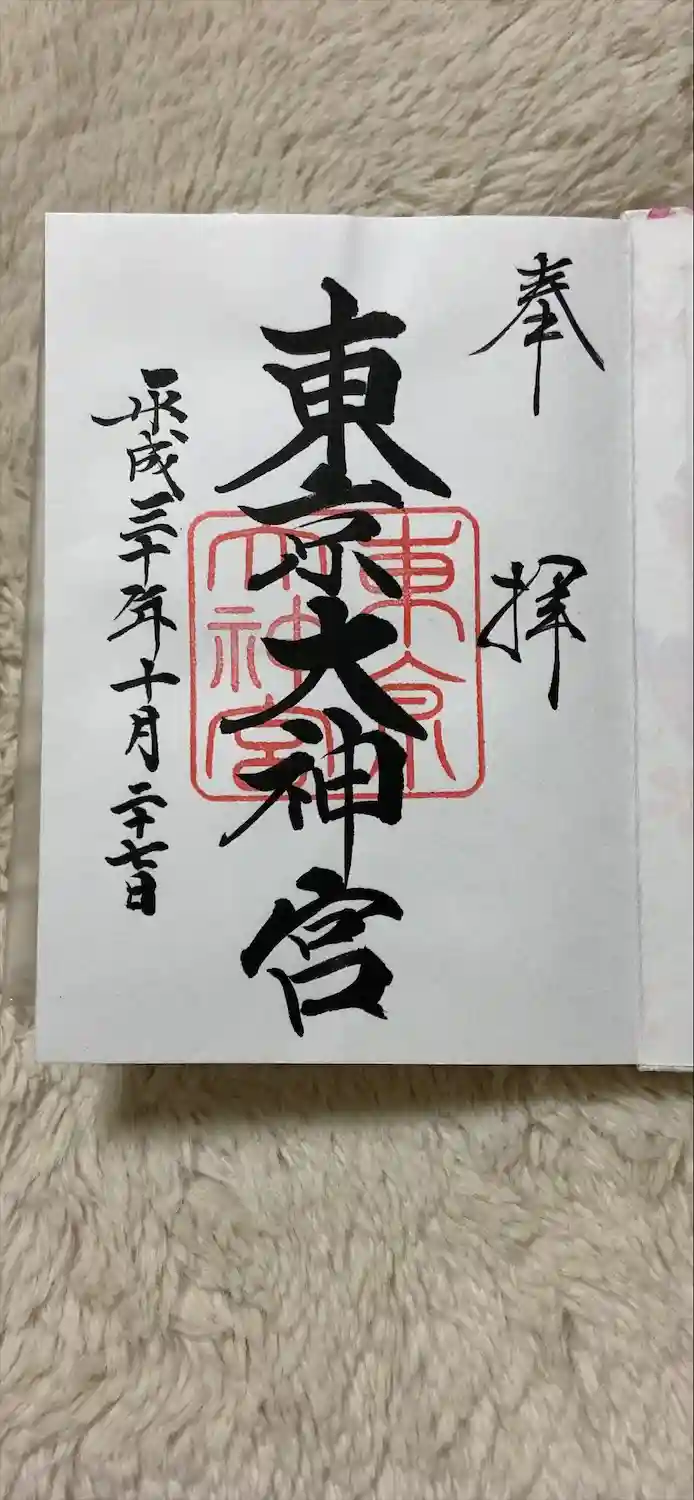 奉拝
東京大神宮
東京
大神宮
平成三十年十月二十七日